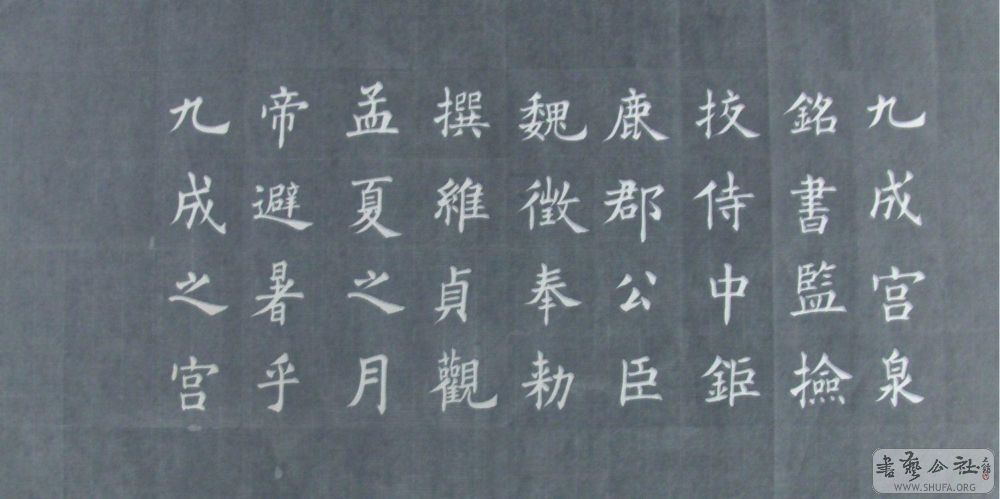 九成宫泉
銘書監撿
挍侍中鉅
鹿郡公臣
魏徵奉勑
撰維貞觀
孟夏之月
帝避暑乎
九成之宫
書藝公社
WWW.SHUFA.ORG